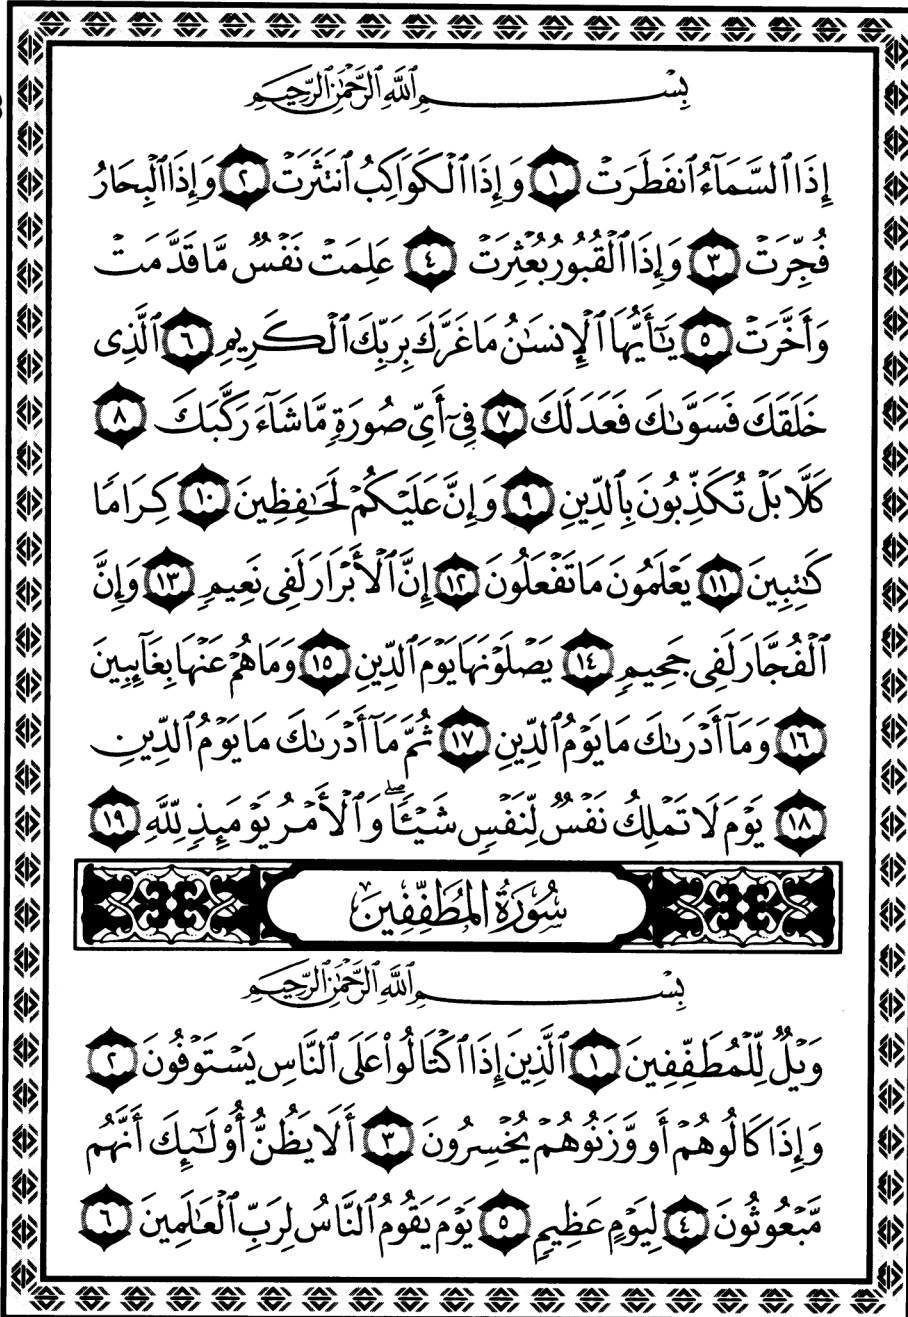 بِسْمِ ٱللَّهِ ٱلرَّحْمَٰنِ ٱلرَّحِيمِ
إِذَا ٱلسَّمَآءُ ٱنفَطَرَتْ ١ وَإِذَا ٱلْكَوَاكِبُ ٱنتَثَرَتْ ٢ وَإِذَا ٱلْبِحَارُ
فُجِّرَتْ ٣ وَإِذَا ٱلْقُبُورُ بُعْثِرَتْ ٤ عَلِمَتْ نَفْسٌ مَّا قَدَّمَتْ
وَأَخَّرَتْ ٥ يَٰٓأَيُّهَا ٱلْإِنسَٰنُ مَا غَرَّكَ بِرَبِّكَ ٱلْكَرِيمِ ٦ ٱلَّذِى
خَلَقَكَ فَسَوَّىٰكَ فَعَدَلَكَ ٧ فِىٓ أَىِّ صُورَةٍ مَّا شَآءَ رَكَّبَكَ ٨
كَلَّا بَلْ تُكَذِّبُونَ بِٱلدِّينِ ٩ وَإِنَّ عَلَيْكُمْ لَحَٰفِظِينَ ١٠ كِرَامًا
كَٰتِبِينَ ١١ يَعْلَمُونَ مَا تَفْعَلُونَ ١٢ إِنَّ ٱلْأَبْرَارَ لَفِى نَعِيمٍ ١٣ وَإِنَّ
ٱلْفُجَّارَ لَفِى جَحِيمٍ ١٤ يَصْلَوْنَهَا يَوْمَ ٱلدِّينِ ١٥ وَمَا هُمْ عَنْهَا بِغَآئِبِينَ
١٦ وَمَآ أَدْرَىٰكَ مَا يَوْمُ ٱلدِّينِ ١٧ ثُمَّ مَآ أَدْرَىٰكَ مَا يَوْمُ ٱلدِّينِ
١٨ يَوْمَ لَا تَمْلِكُ نَفْسٌ لِّنَفْسٍ شَيْـًٔا ۖ وَٱلْأَمْرُ يَوْمَئِذٍ لِّلَّهِ ١٩
سُورَةُ المُطَفِّفِينَ
بِسْمِ ٱللَّهِ ٱلرَّحْمَٰنِ ٱلرَّحِيمِ
وَيْلٌ لِّلْمُطَفِّفِينَ ١ ٱلَّذِينَ إِذَا ٱكْتَالُوا۟ عَلَى ٱلنَّاسِ يَسْتَوْفُونَ ٢
وَإِذَا كَالُوهُمْ أَو وَّزَنُوهُمْ يُخْسِرُونَ ٣ أَلَا يَظُنُّ أُو۟لَٰٓئِكَ أَنَّهُم
مَّبْعُوثُونَ ٤ لِيَوْمٍ عَظِيمٍ ٥ يَوْمَ يَقُومُ ٱلنَّاسُ لِرَبِّ ٱلْعَٰلَمِينَ ٦